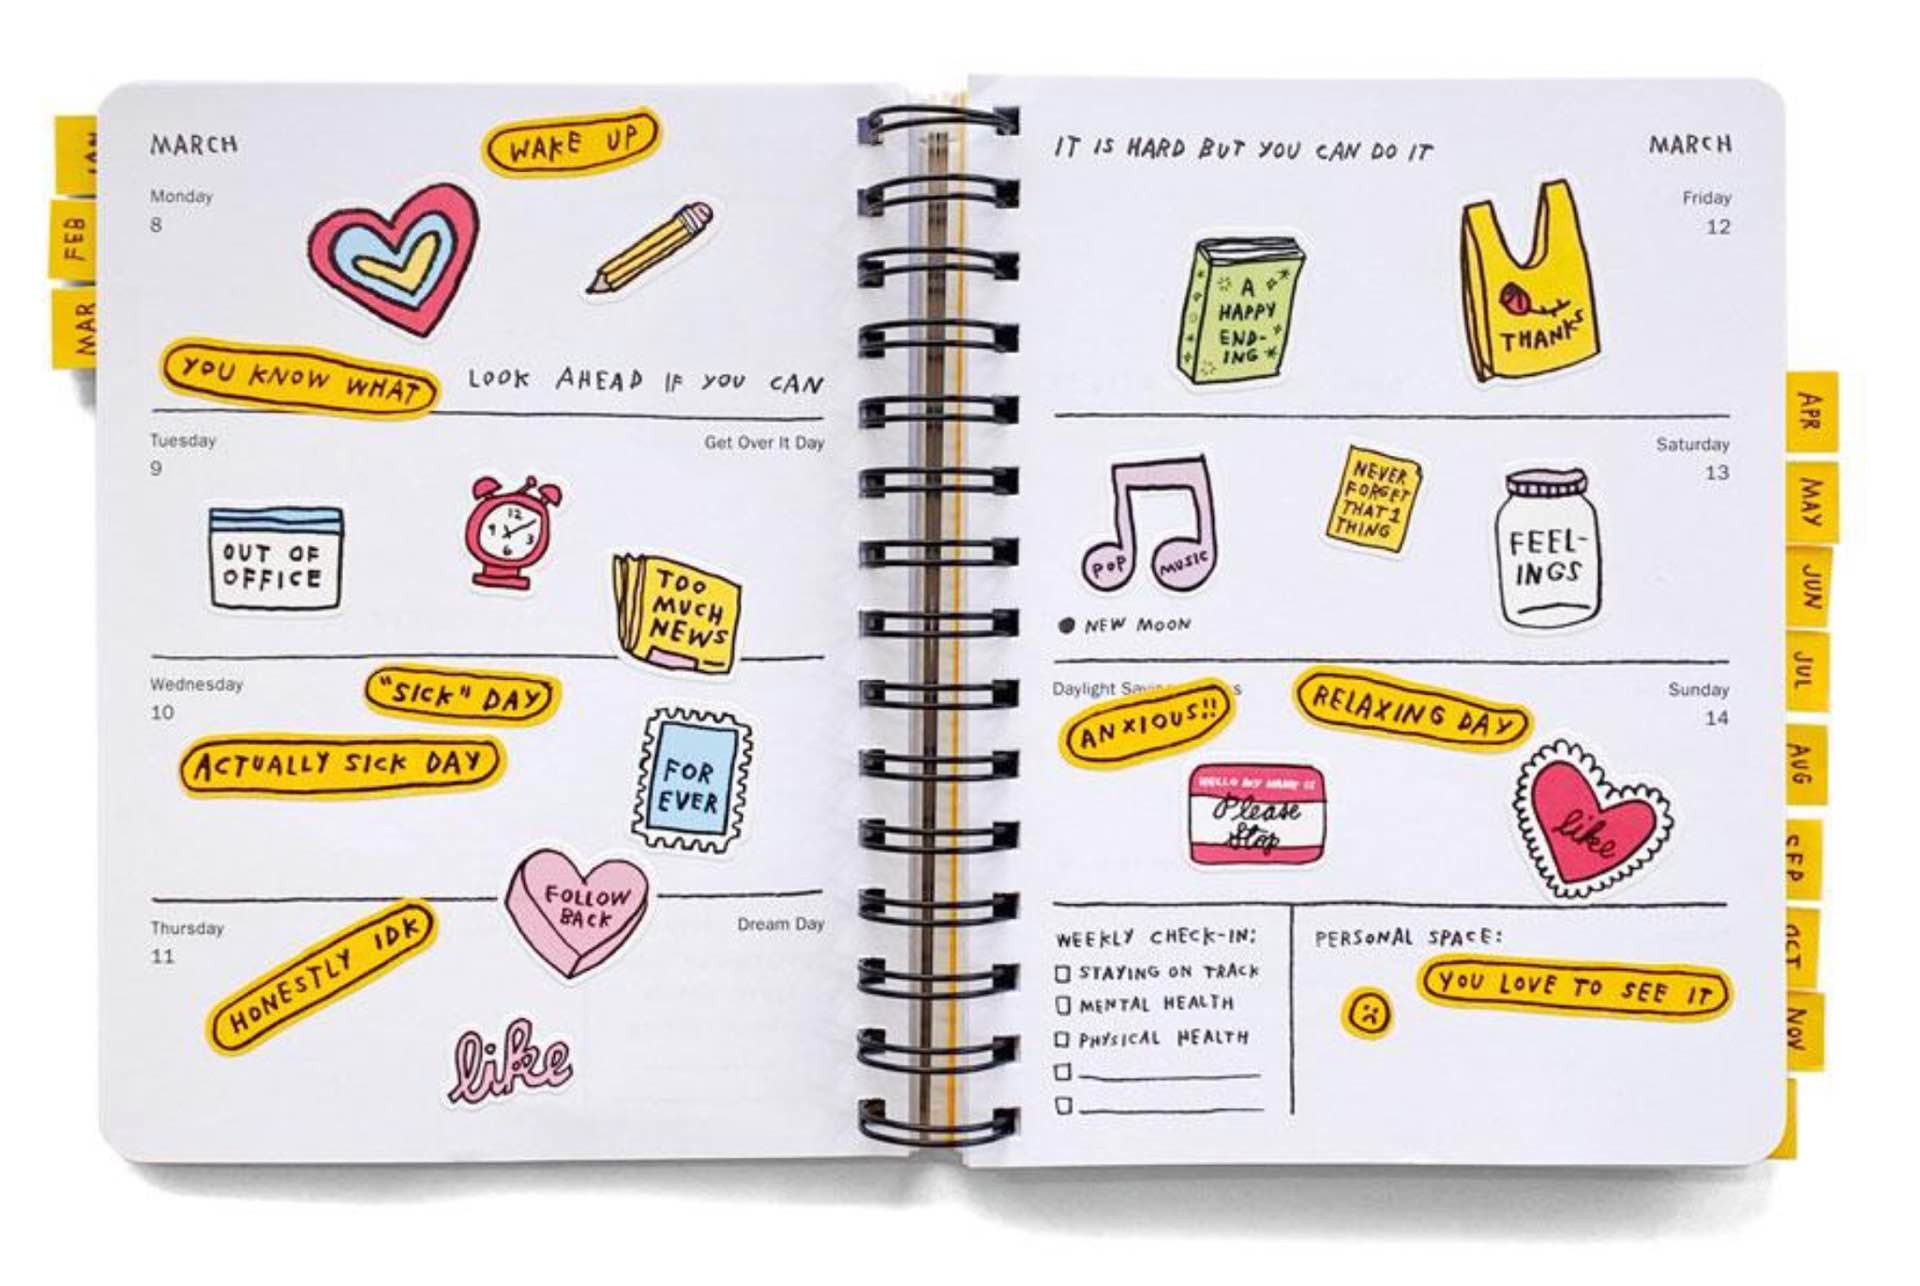 MARCH
WAKE UP
Monday
8
YOU KNOW WHAT
LOOK AHEAD IF YOU CAN
Tuesday
9
Get Over It Day
OUT OF
OFFICE
12
9 3
6
TOO
MUCH
NEWS
Wednesday
10
"SICK" DAY
ACTUALLY SICK DAY
FOR
EVER
Thursday
11
Dream Day
FOLLOW
BACK
HONESTLY IDK
like
IT IS HARD BUT YOU CAN DO IT
MARCH
Friday
12
A
HAPPY
END-
ING
THANKS
Saturday
13
POP MUSIC
NEVER
FORGET
THAT 1
THING
FEEL-
INGS
NEW MOON
Daylight
Sunday
14
ANXIOUS!!
RELAXING DAY
HELLO MY NAME IS
Please
Stop
like
WEEKLY CHECK-IN:
STAYING ON TRACK
MENTAL HEALTH
PHYSICAL HEALTH
PERSONAL SPACE:
YOU LOVE TO SEE IT
JAN
FEB
MAR
APR
MAY
JUN
JUL
AUG
SEP
OCT
NOV